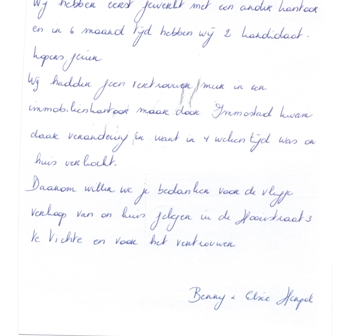 Wij hebben eerst gewerkt met een ander kantoor
en in 6 maand tijd hebben wij 2 kandidaat-
kopers gezien
Wij hadden geen vertrouwen meer in een
immobiliënkantoor maar door Immostad kwam
daar verandering in want in 4 weken tijd was on
huis verkocht.
Daarom willen we je bedanken voor de vlugge
verkoop van on huis gelegen in de
te Vichte en voor het vertrouwen
Benny & Elsie